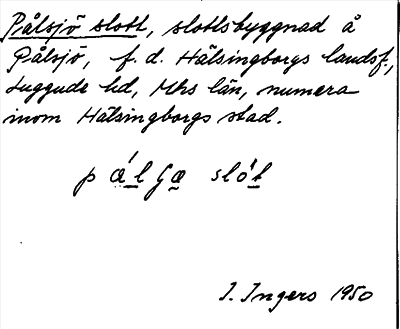 Pålsjö slott, slottsbyggnad å
Pålsjö, f. d. Hälsingborgs landsf.,
Luggude hd, Mhs län, numera
inom Hälsingborgs stad.
slót
I. Ingers 1950